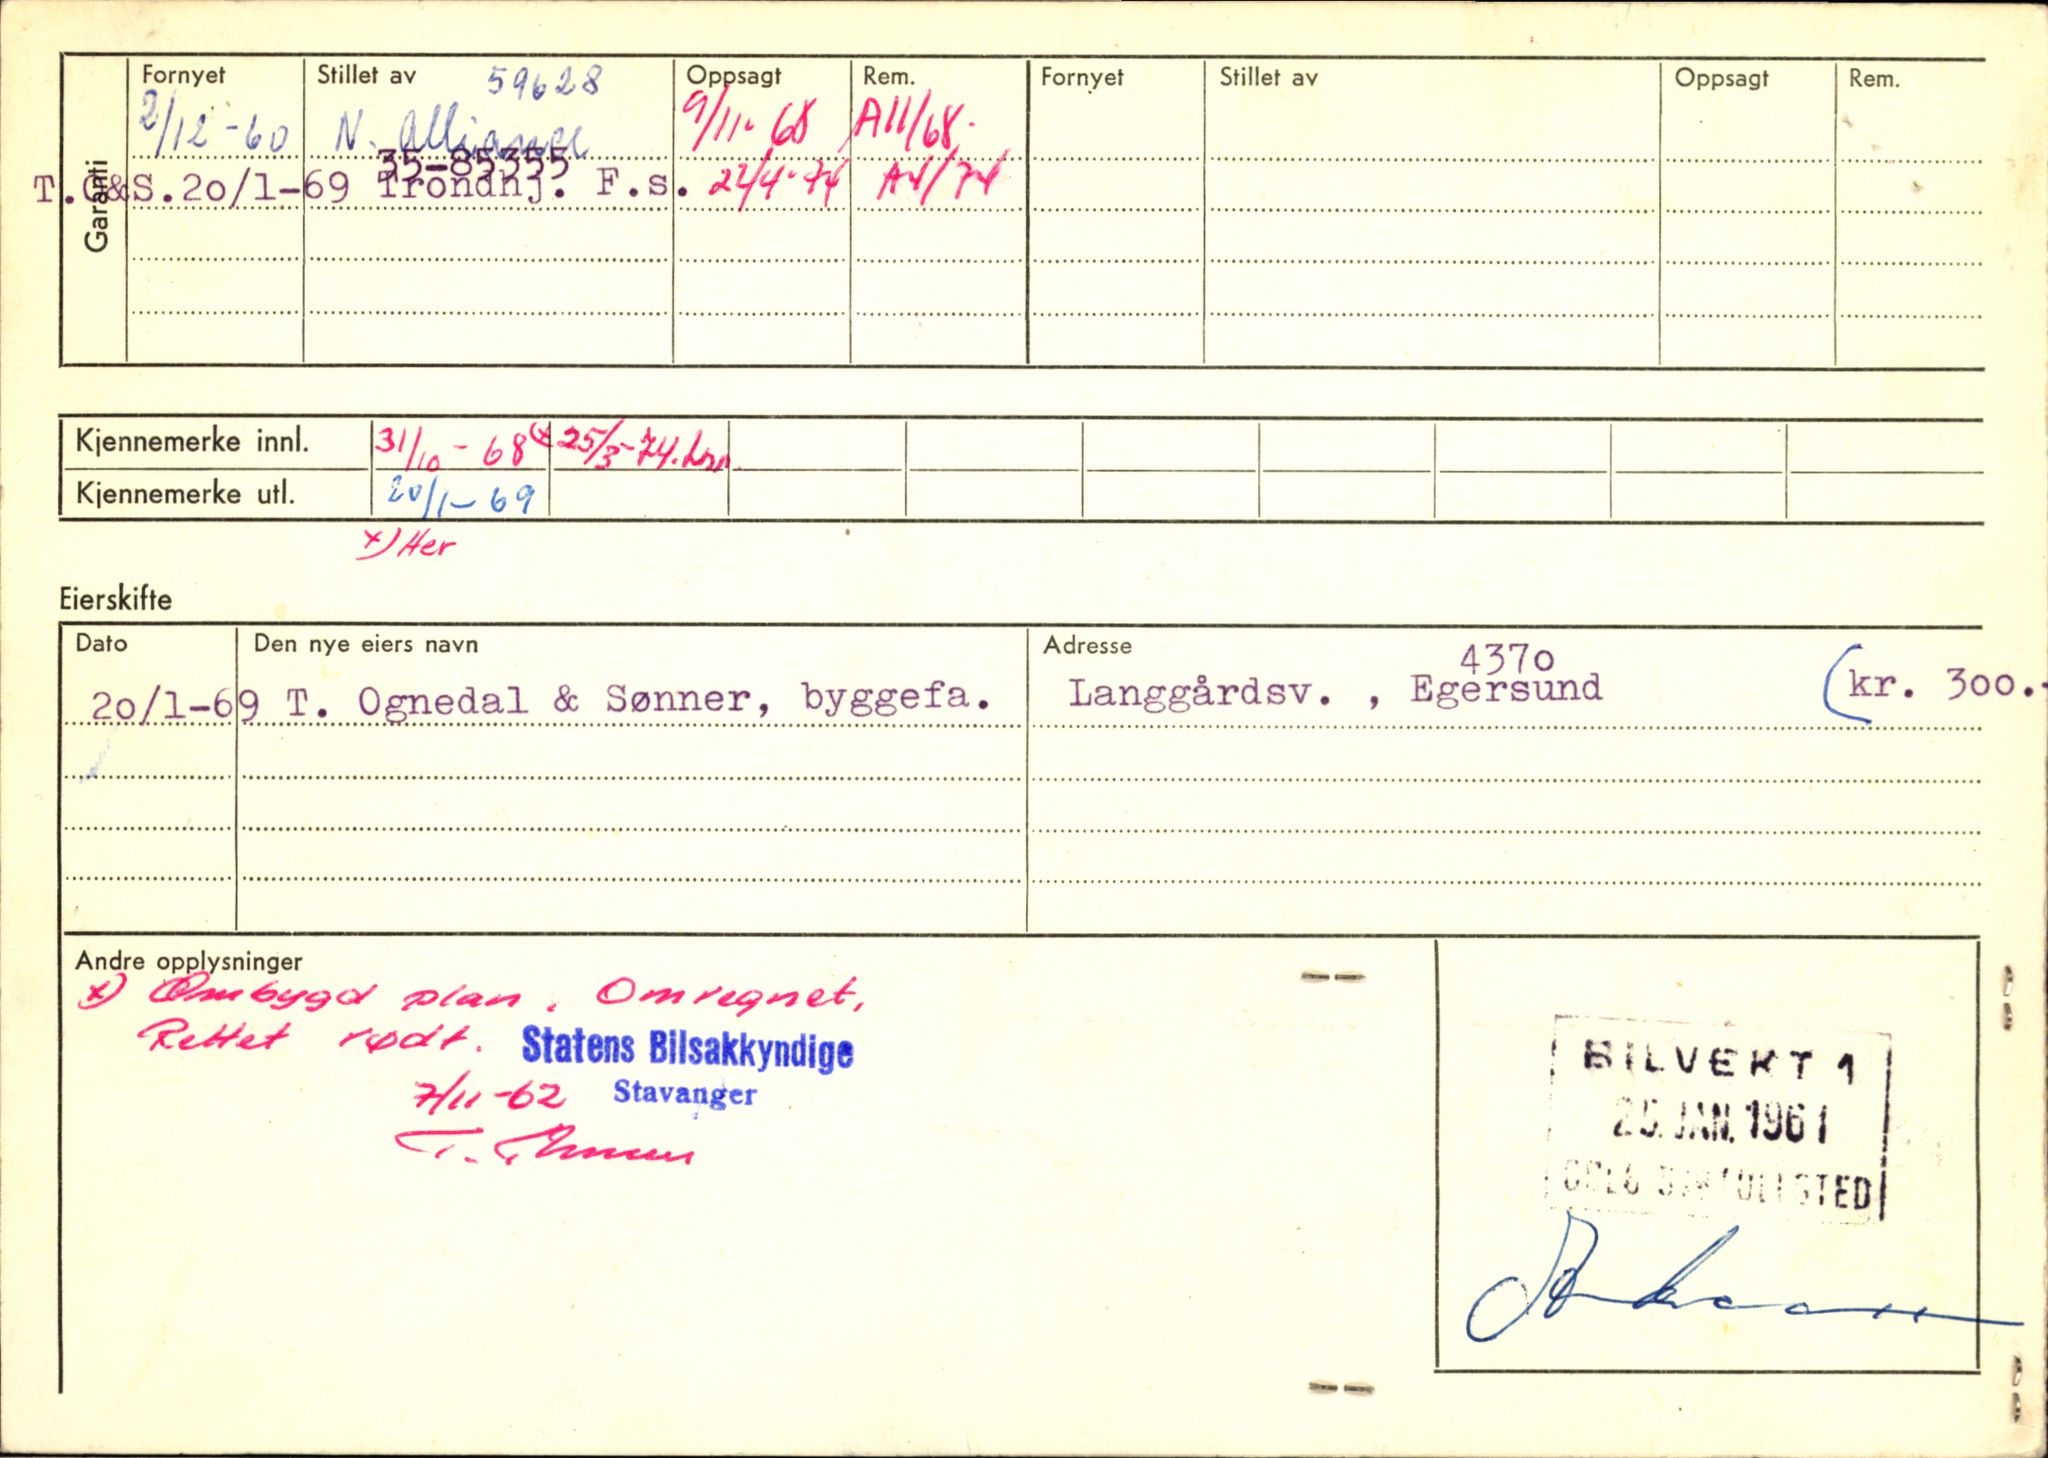 Garanti
Fornyet Stillet av Oppsagt Rem. Fornyet Stillet av Oppsagt Rem.
59628
2/12-60 N. Alliance 9/11-68 A11/68.
35-85355
T.O&S.20/1-69 Trondhj. F.s. 24-74 A4/74
Kjennemerke innl. 31/10-68 x) 25/3-74.
Kjennemerke utl. 20/1-69
x) Her
Eierskifte
Dato Den nye eiers navn Adresse
4370
20/1-69 T. Ognedal & Sønner, byggefa. Langgårdsv. , Egersund (kr. 300.-
Andre opplysninger
x) Ombygd plan. Omregnet,
Rettet rødt. Statens Bilsakkyndige
7/11-62 Stavanger
T.
BILVEKT 1
25. JAN. 1961
OSLO